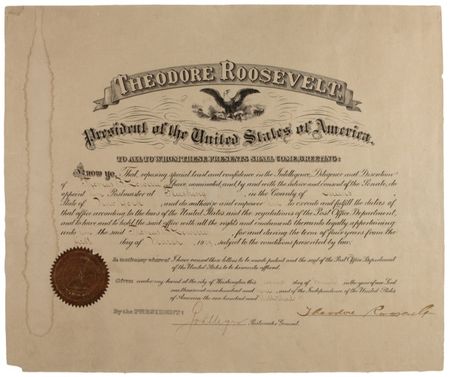 THEODORE ROOSEVELT,
President of the United States of America.
TO ALL TO WHOM THESE PRESENTS SHALL COME, GREETING:
Know ye, That, reposing special trust and confidence in the Intelligence, Diligence and Discretion
of I have nominated, and, by and with the advice and consent of the Senate, do
appoint Postmaster at Flushing in the County of
State of New York, and do authorize and empower to execute and fulfill the duties of
that office according to the laws of the United States and the regulations of the Post Office Department,
and to have and to hold the said office with all the rights and emoluments thereunto legally appertaining
unto the said for and during the term of four years from the
day of subject to the conditions prescribed by law.
In testimony whereof I have caused these letters to be made patent and the seal of the Post Office Department
of the United States to be hereunto affixed.
Given under my hand at the city of Washington this day of in the year of our Lord
one thousand nine hundred and and of the Independence of the United States
of America the one hundred and
By the PRESIDENT:
Theodore Roosevelt
Postmaster General.